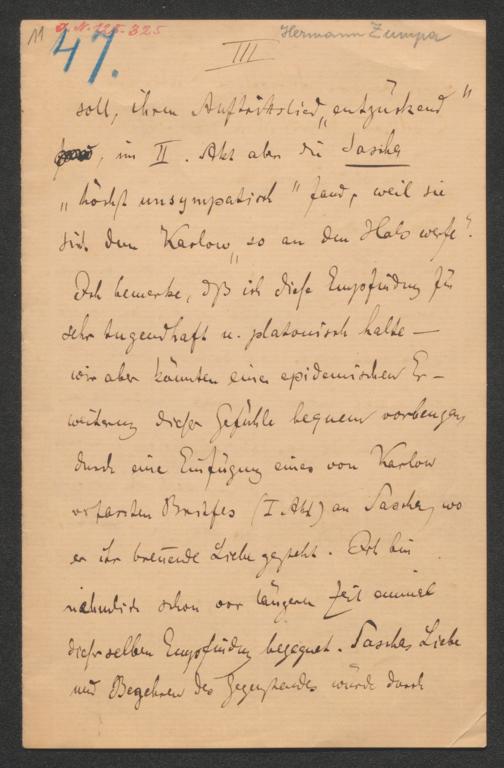 11
I.N. 125.325
Hermann Zumpe
47.
III
soll, ihrem Auftrittslied „entzückend"
, im II. Akt aber die Sascha
„höchst unsympatisch" fand, weil sie
sich dem Karlow „so an den Hals werfe".
Ich bemerke, daß ich diese Empfindung für
sehr tugendhaft u. platonisch halte —
wir aber könnten einer epidemischen Er-
weiterung dieser Gefühle bequem vorbeugen,
durch eine Einfügung eines von Karlow
verfassten Briefes (I. Akt) an Sascha, wo
er ihr brennende Liebe gesteht. Ich bin
nähmlich schon vor längerer Zeit einmal
dieser selben Empfindung begegnet. Saschas Liebe
und Begehren des Gegenstandes würde durch